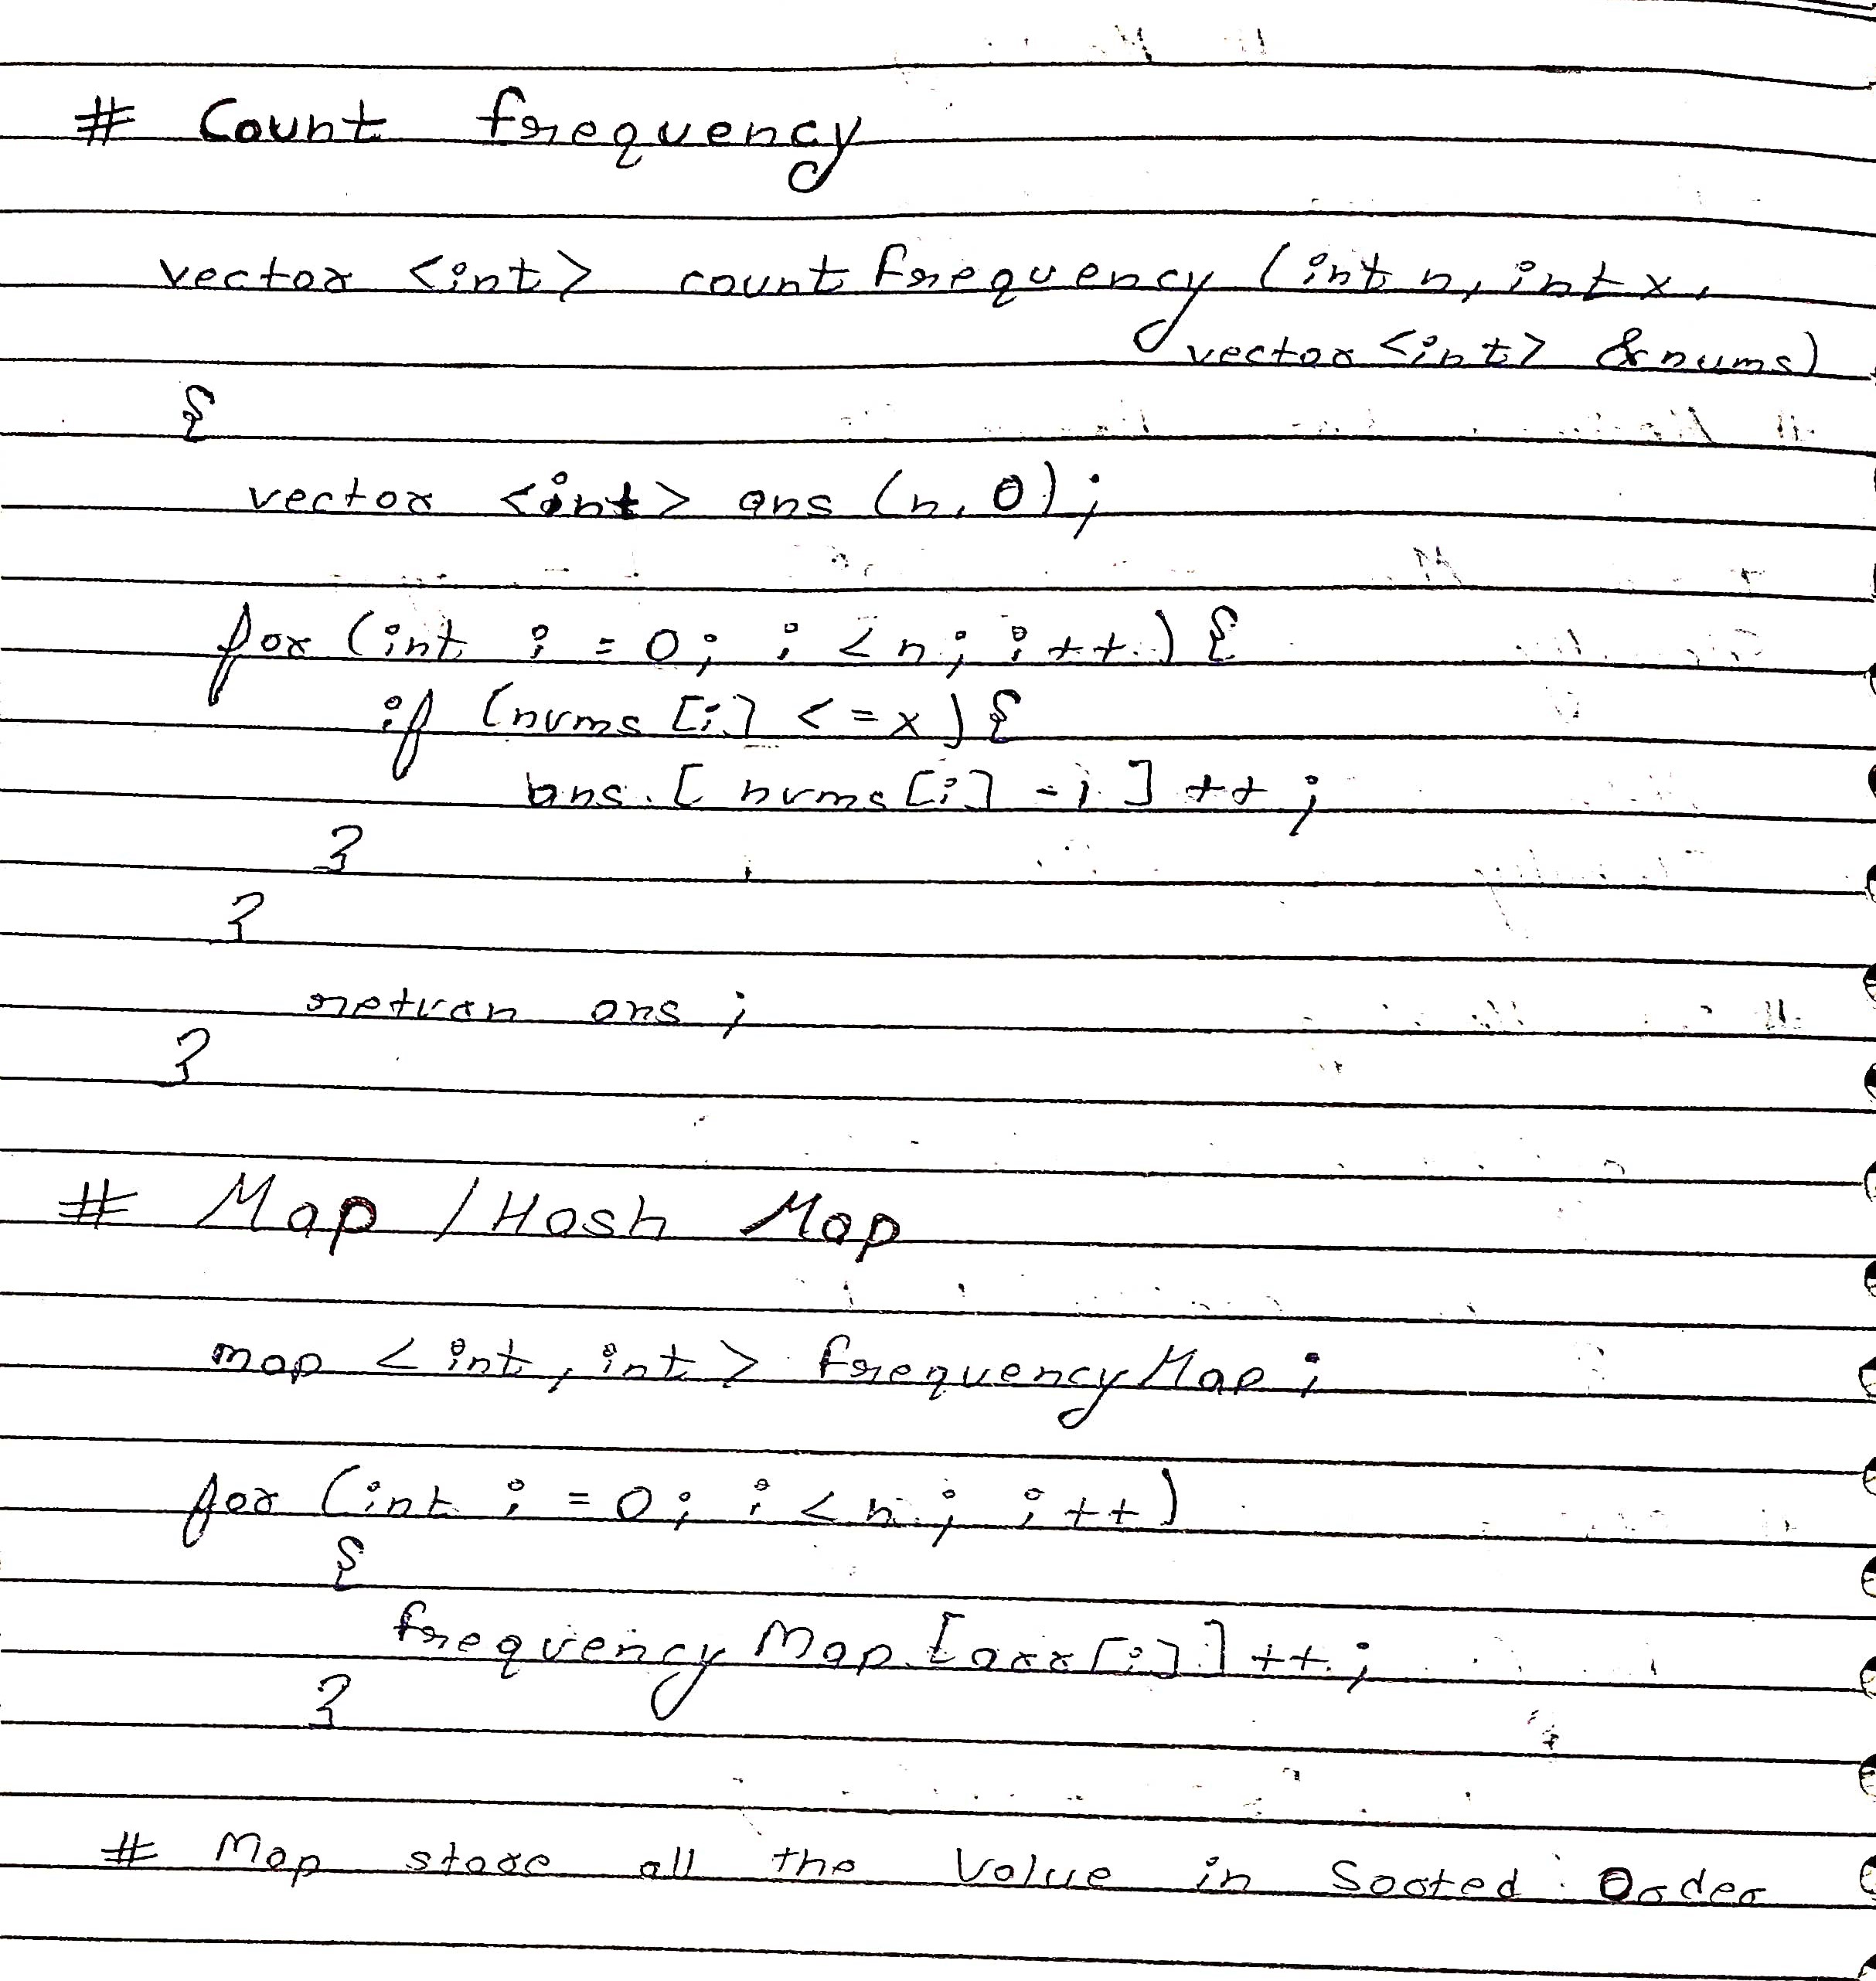 # Count frequency
vector <int> count frequency (int n, int x,
vector <int> &nums)
{
vector <int> ans (n, 0);
for (int i = 0; i < n; i++) {
if (nums [i] <= x) {
ans [ nums [i] - 1 ] ++;
}
}
return ans ;
}
# Map / Hash Map
map < int, int > frequency Map ;
for (int i = 0; i < n ; i++)
{
frequency Map [arr[i]] ++;
}
# Map store all the Value in Sorted Order